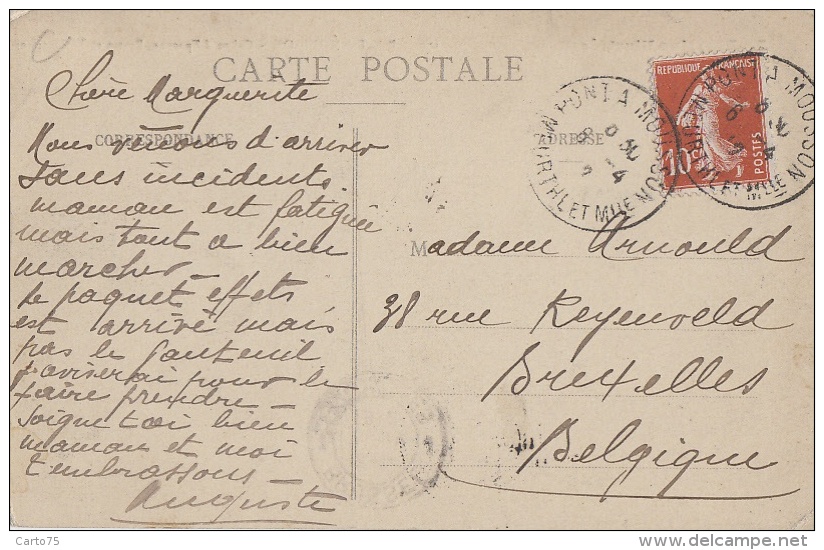 CARTE POSTALE
CORRESPONDANCE
ADRESSE
Chère Marguerite
Nous venons d'arriver
sans incidents
maman est fatiguée
mais tout a bien
marcher
le paquet effets
est arrivé mais
pas le fauteuil
j'aviserai pour le
faire prendre
soigne toi bien
maman et moi
t'embrassons
Auguste
REPUBLIQUE FRANÇAISE
10c
POSTES
PONT A MOUSSON
MEURTHE ET MLLE
PONT A MOUSSON
MEURTHE ET MLLE
Madame Arnould
38 rue Reyenveld
Bruxelles
Belgique
Carto75
delcampe.net